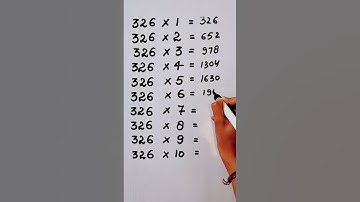 326 × 1 = 326
326 × 2 = 652
326 × 3 = 978
326 × 4 = 1304
326 × 5 = 1630
326 × 6 = 19
326 × 7 =
326 × 8 =
326 × 9 =
326 × 10 =